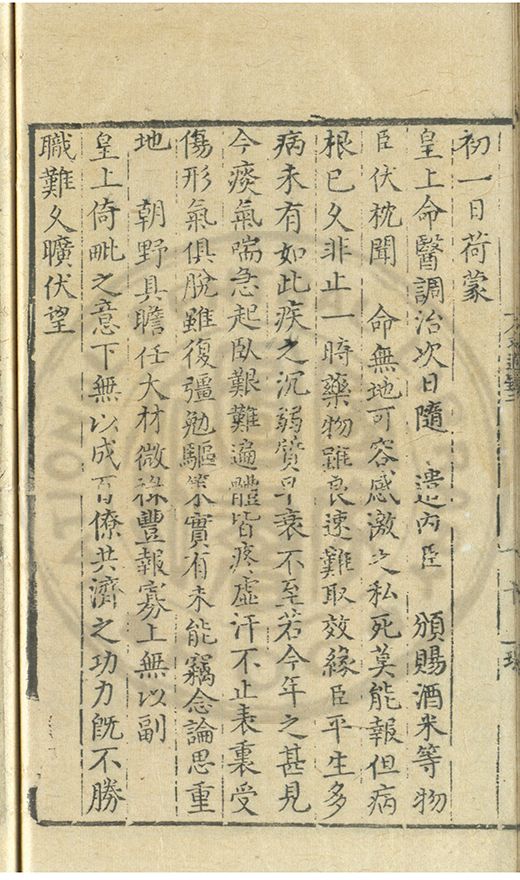 初一日荷蒙
皇上命醫調治次日隨 遣內臣 頒賜酒米等物
臣伏枕聞 命無地可容感激之私死莫能報但病
根已久非止一時藥物雖良速難取效緣臣平生多
病未有如此疾之沉弱質早衰不至若今年之甚見
今痰氣喘急起臥艱難遍體皆疼虛汗不止表裏受
傷形氣俱脫雖復彊勉驅策實有未能竊念論思重
地 朝野具瞻任大材微祿豐報寡上無以副
皇上倚毗之意下無以成百僚共濟之功力旣不勝
職難久曠伏望